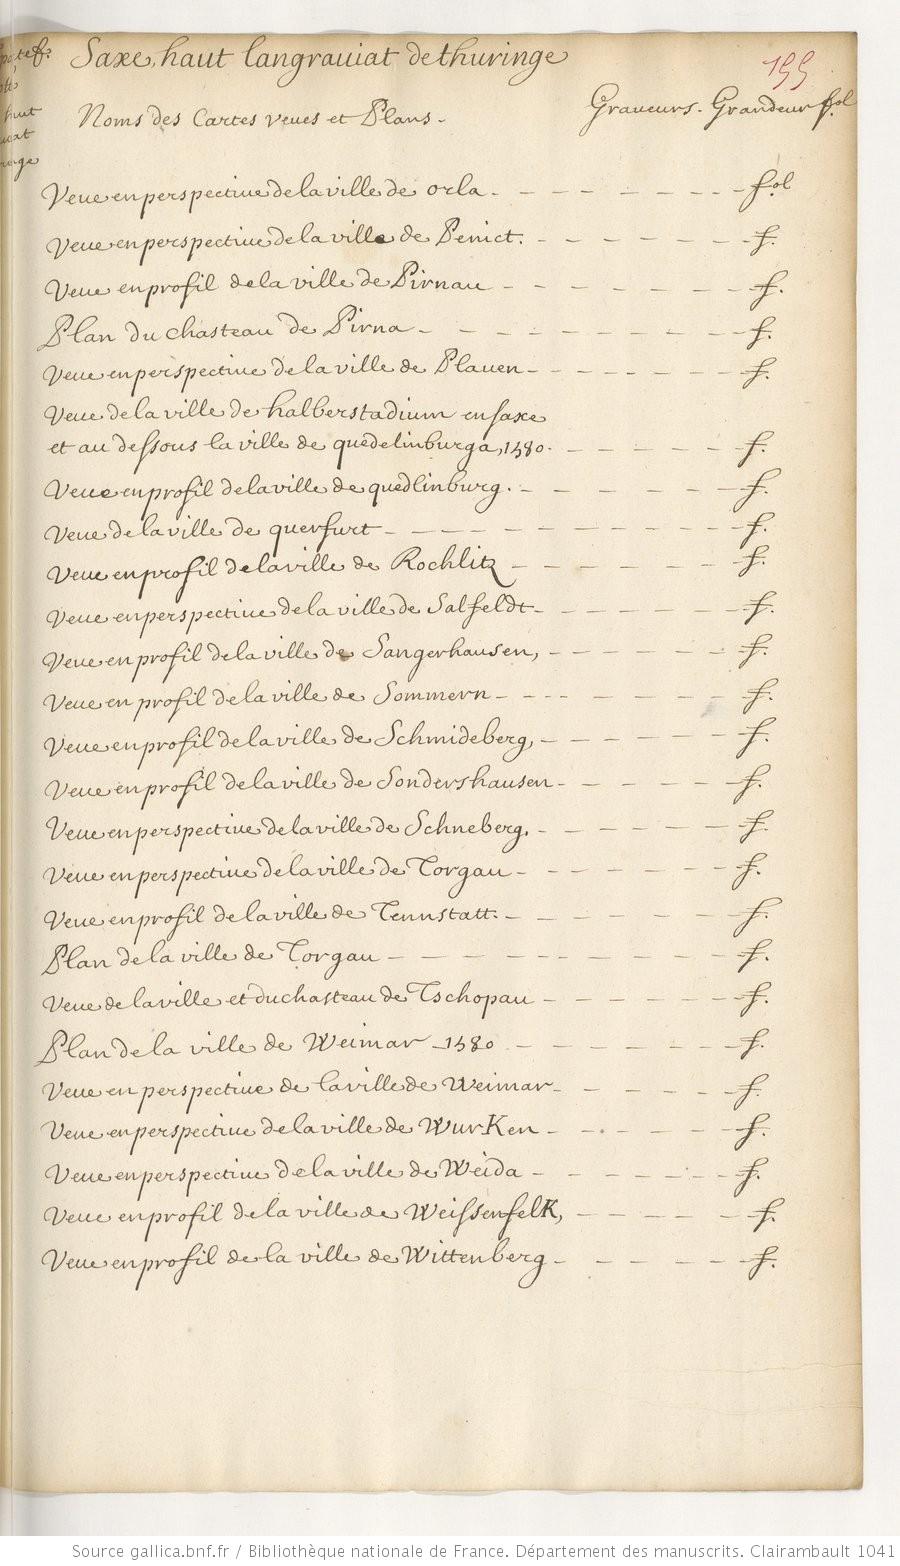 Saxe, haut langrauiat de thuringe
155
Noms des Cartes veues et Plans. Graveurs. Grandeur f.ol
Veue en perspectiue de la ville de orla. f.ol
Veue en perspectiue de la ville de Penict. f.
Veue en profil de la ville de Pirnau f.
Plan du chasteau de Pirna f.
Veue en perspectiue de la ville de Plauen f.
Veue de la ville de halberstadium en saxe
et au dessous la ville de quedelinburga, 1580. f.
Veue en profil de la ville de quedlinburg. f.
Veue de la ville de querfurt f.
Veue en profil de la ville de Rochlitz f.
Veue en perspectiue de la ville de Salfeldt f.
Veue en profil de la ville de Sangerhausen, f.
Veue en profil de la ville de Sommern f.
Veue en profil de la ville de Schmideberg, f.
Veue en profil de la ville de Sondershausen f.
Veue en perspectiue de la ville de Schneberg, f.
Veue en perspectiue de la ville de Torgau f.
Veue en profil de la ville de Tennstatt. f.
Plan de la ville de Torgau f.
Veue de la ville et du chasteau de Tschopau f.
Plan de la ville de Weimar 1580 f.
Veue en perspectiue de la ville de Weimar f.
Veue en perspectiue de la ville de WurKen f.
Veue en perspectiue de la ville de Weida f.
Veue en profil de la ville de WeissenfelK, f.
Veue en profil de la ville de Wittenberg f.
Source gallica.bnf.fr / Bibliothèque nationale de France. Département des manuscrits. Clairambault 1041